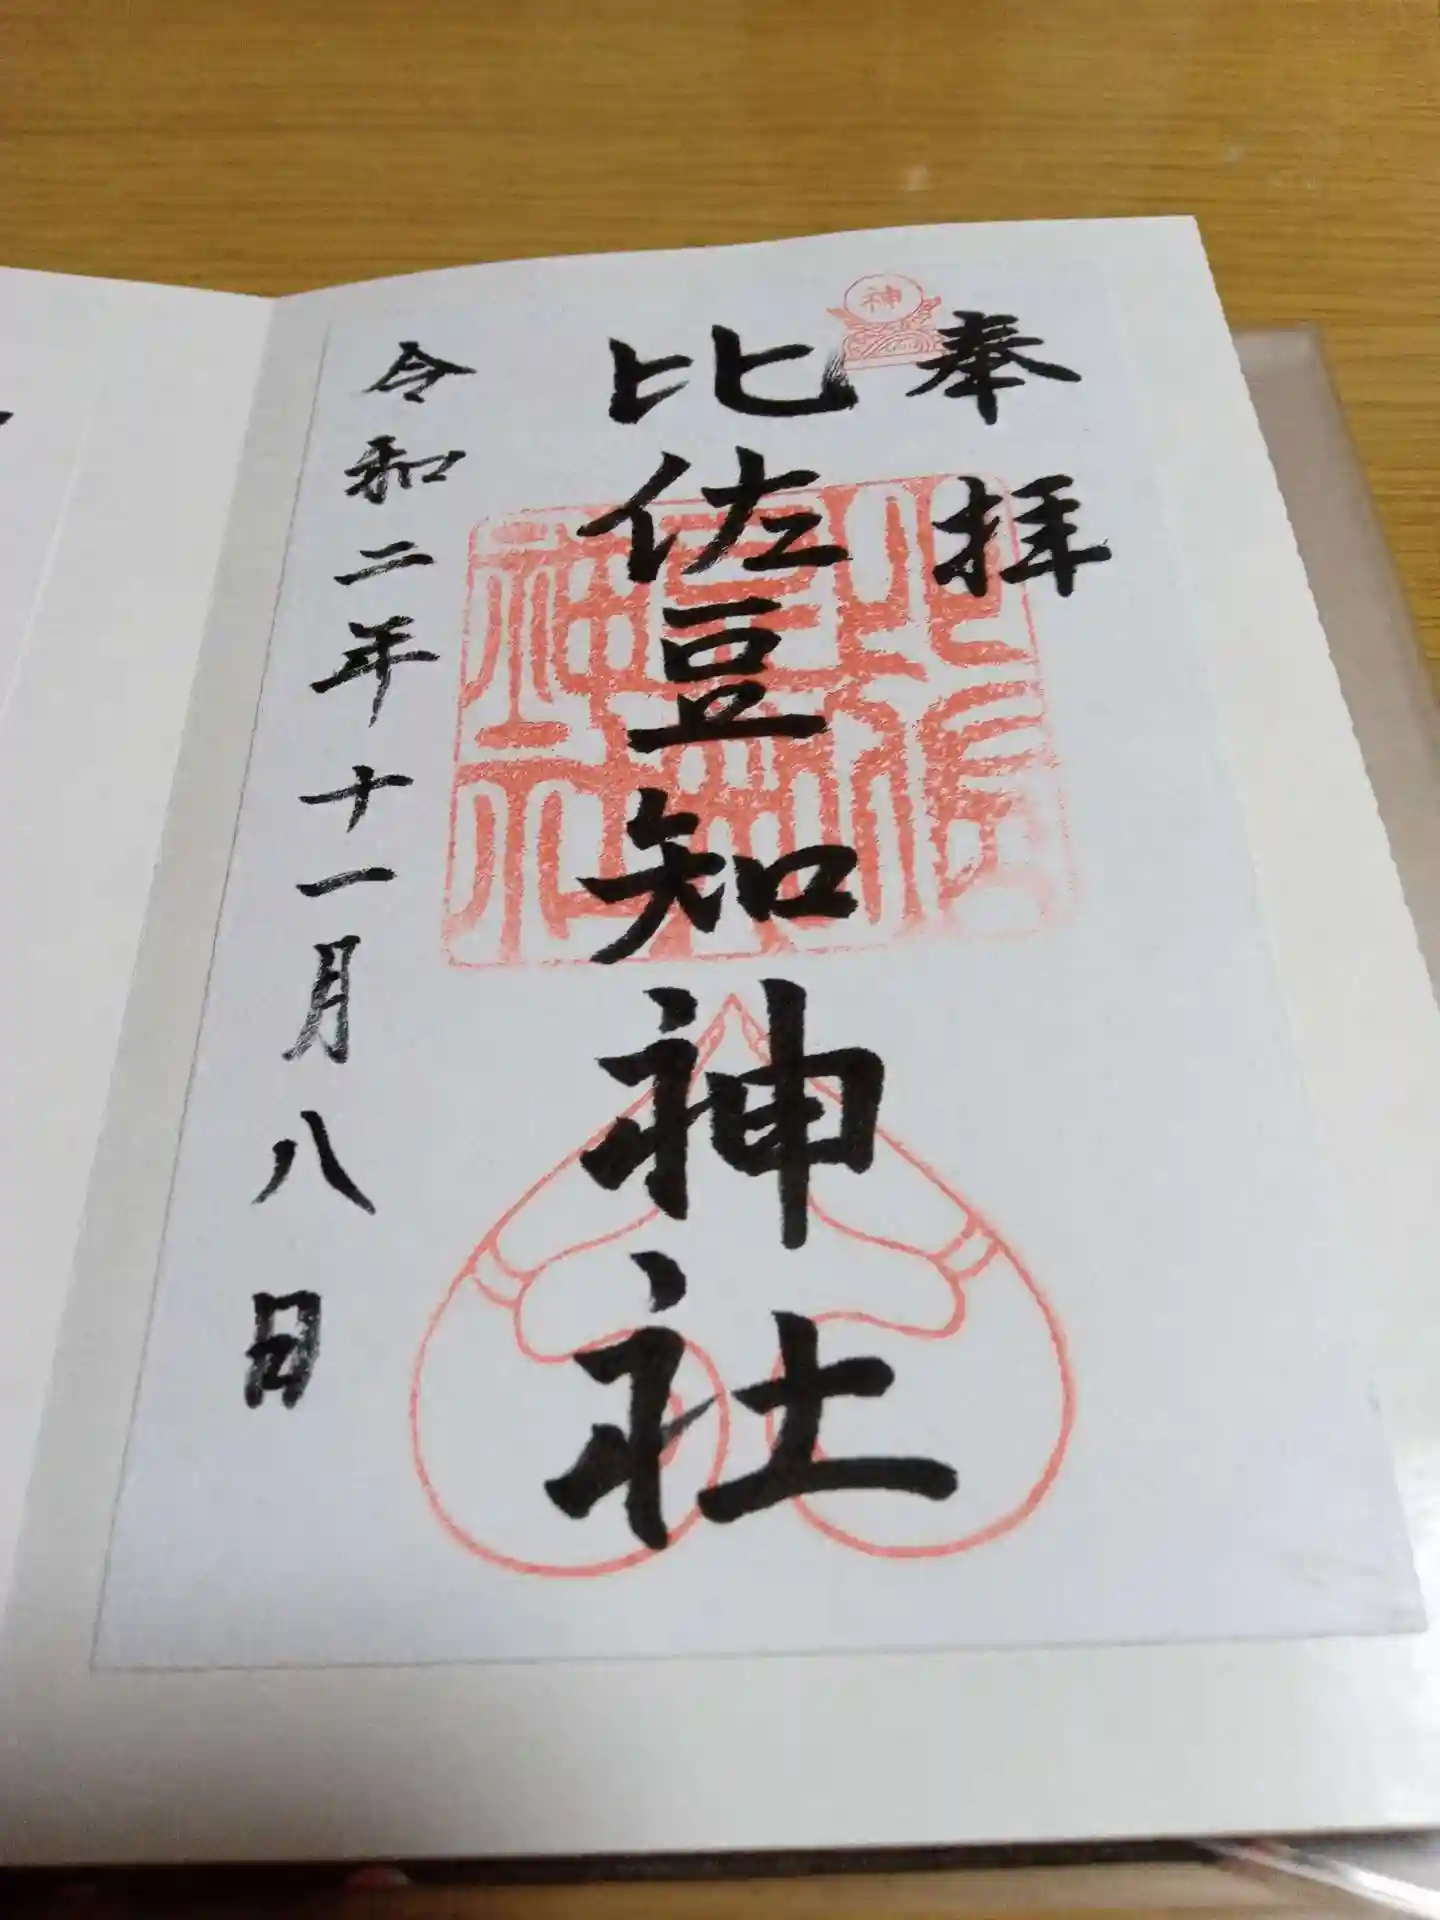 奉拝
神
比佐豆知神社
比佐豆知神社
令和二年十一月八日